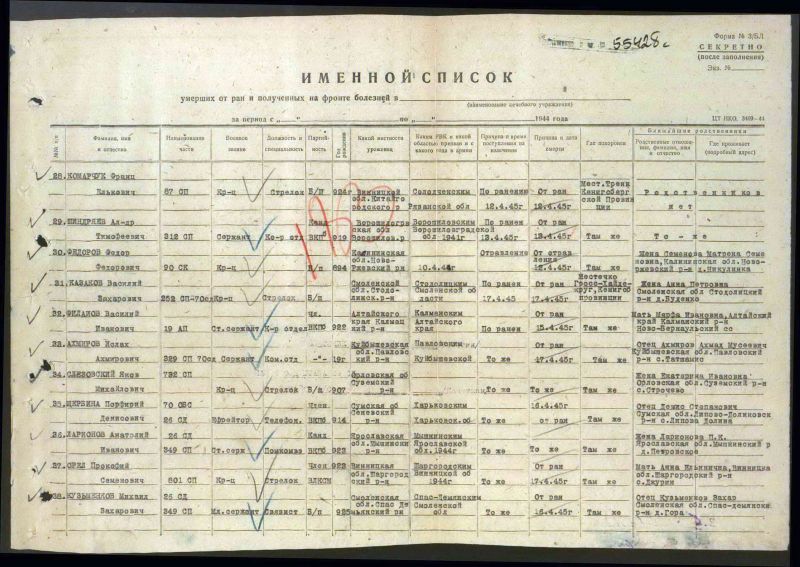 55428с
Форма № 3/БЛ
СЕКРЕТНО
(после заполнения)
Экз. №
ИМЕННОЙ СПИСОК
умерших от ран и полученных на фронте болезней в
(наименование лечебного учреждения)
за период с „ “ по „ “ 1944 года
ЦТ НКО.
№№ п/п Фамилия, имя и отчество Наименование части Военное звание Должность и специальность Партийность Год рождения Какой местности уроженец Каким РВК и какой областью призван и с какого года в армии Причина и время поступления на излечение Причина и дата смерти Где похоронен Ближайшие родственники
Родственные отношения, фамилия, имя и отчество Где проживают (подробный адрес)
28. КОМАРЧУК Франц
Елькович 87 СП Кр-ц Стрелок Б/п 924г Винницкой обл. По ранению 12.4.45г От ран 12.4.45г Мест.Тренк Кенигсбергской Провинции Родственников нет
29. ШИНДРЯЕВ Ал-др
Тимофеевич 312 СП Сержант Ко-р отд Канд ВКП 919 Ворошиловской обл. Ворошилов.р Ворошиловским Ворошилоградской обл 1941г По ранен 13.4.45г От ран 13.4.45г Там же То - же
30. ФЕДОРОВ Федор
Федорович 90 СК Кр-ц Б/п 894 Калининская обл.Ново-Ржевский рн 10.4.44г Отравление От отравления 12.4.45г Там же Жена Семенова Матрена Семеновна,Калининская обл.Новоржевский р-н д.Никулинка
31. КАЗАКОВ Василий
Захарович 252 СП Стрелок Б/п Смоленской обл.Стодолинск.р-н Стодолицким Смоленской области По ранен 17.4.45 От ран 17.4.45г Местечко Гросс-Хайде Жена Анна Петровна Смоленская обл Стодолицкий р-н д.Буденко
32. ФИЛАНОВ Василий
Иванович 19 АП Ст.сержант К-р отдел Чл. ВКПб 922 Алтайского края Калман р-н Калманским Алтайского края По ранен От ран 15.4.45г Там же Мать Марфа Ивановна,Алтайский край Калманский р-н Ново-Бернаульский сс
33. АХМИРОВ Ислах
Ахмирович 329 СП Сержант Ком.отд -"- 19г Куйбышевской обл.Павловск р-н Павловским Куйбышевской То же От ран 17.4.45г Там же Отец Ахмиров Ахмад Мусеевич Куйбышевская обл.Павловский р-н с.Татшамис
34. СЛЕЗОВСКИЙ Яков 732 СП
Михайлович Кр-ц Стрелок Б/п 907 Орловская об Суземский р-н То же То же Там же Жена Екатерина Ивановна Орловская обл.Суземский р-н с.Строчево
35. ЩЕРБИНА Порфирий 70 ОБС
Денисович 26 СД Ефрейтор Телефон. Член ВКПб 914 Сумская об Сеневский р-н Харьковским Харьковск.об То же 16.4.45г от ран Там же Отец Денис Степанович Сумской обл.Липово-Долиновск р-н с.Липова Долина
36. ЛАРИОНОВ Анатолий 26 СД
Иванович 349 СП Ст.серж Помкомвз Канд ВКПб 923 Ярославская обл.Мышкински рн Мышкинским Ярославской обл.1944г То же От ран Там же Жена Ларионова П.К. Ярославская обл.Мышкинский р-н д.Петровское
37. ОРЕЛ Прокофий
Семенович 801 СП Кр-ц Стрелок Член ВЛКСМ 923 Винницкая обл.Шаргород ский р-н Шаргородским Винницкой об 1944г То же От ран 17.4.45г Там же Мать Анна Ильинична,Винницкая обл.Шаргородский р-н с.Джурин
38. КУЗЬМЕНКОВ Михаил 26 СД
Захарович 349 СП Мл.сержант Связист Б/п 925 Смоленская обл.Спас Демьянский рн Спас-Деменским Смоленской обл То же От ран 16.4.45г Там же Отец Кузьменков Захар Смоленская обл.Спас-демянский р-н д.Гора